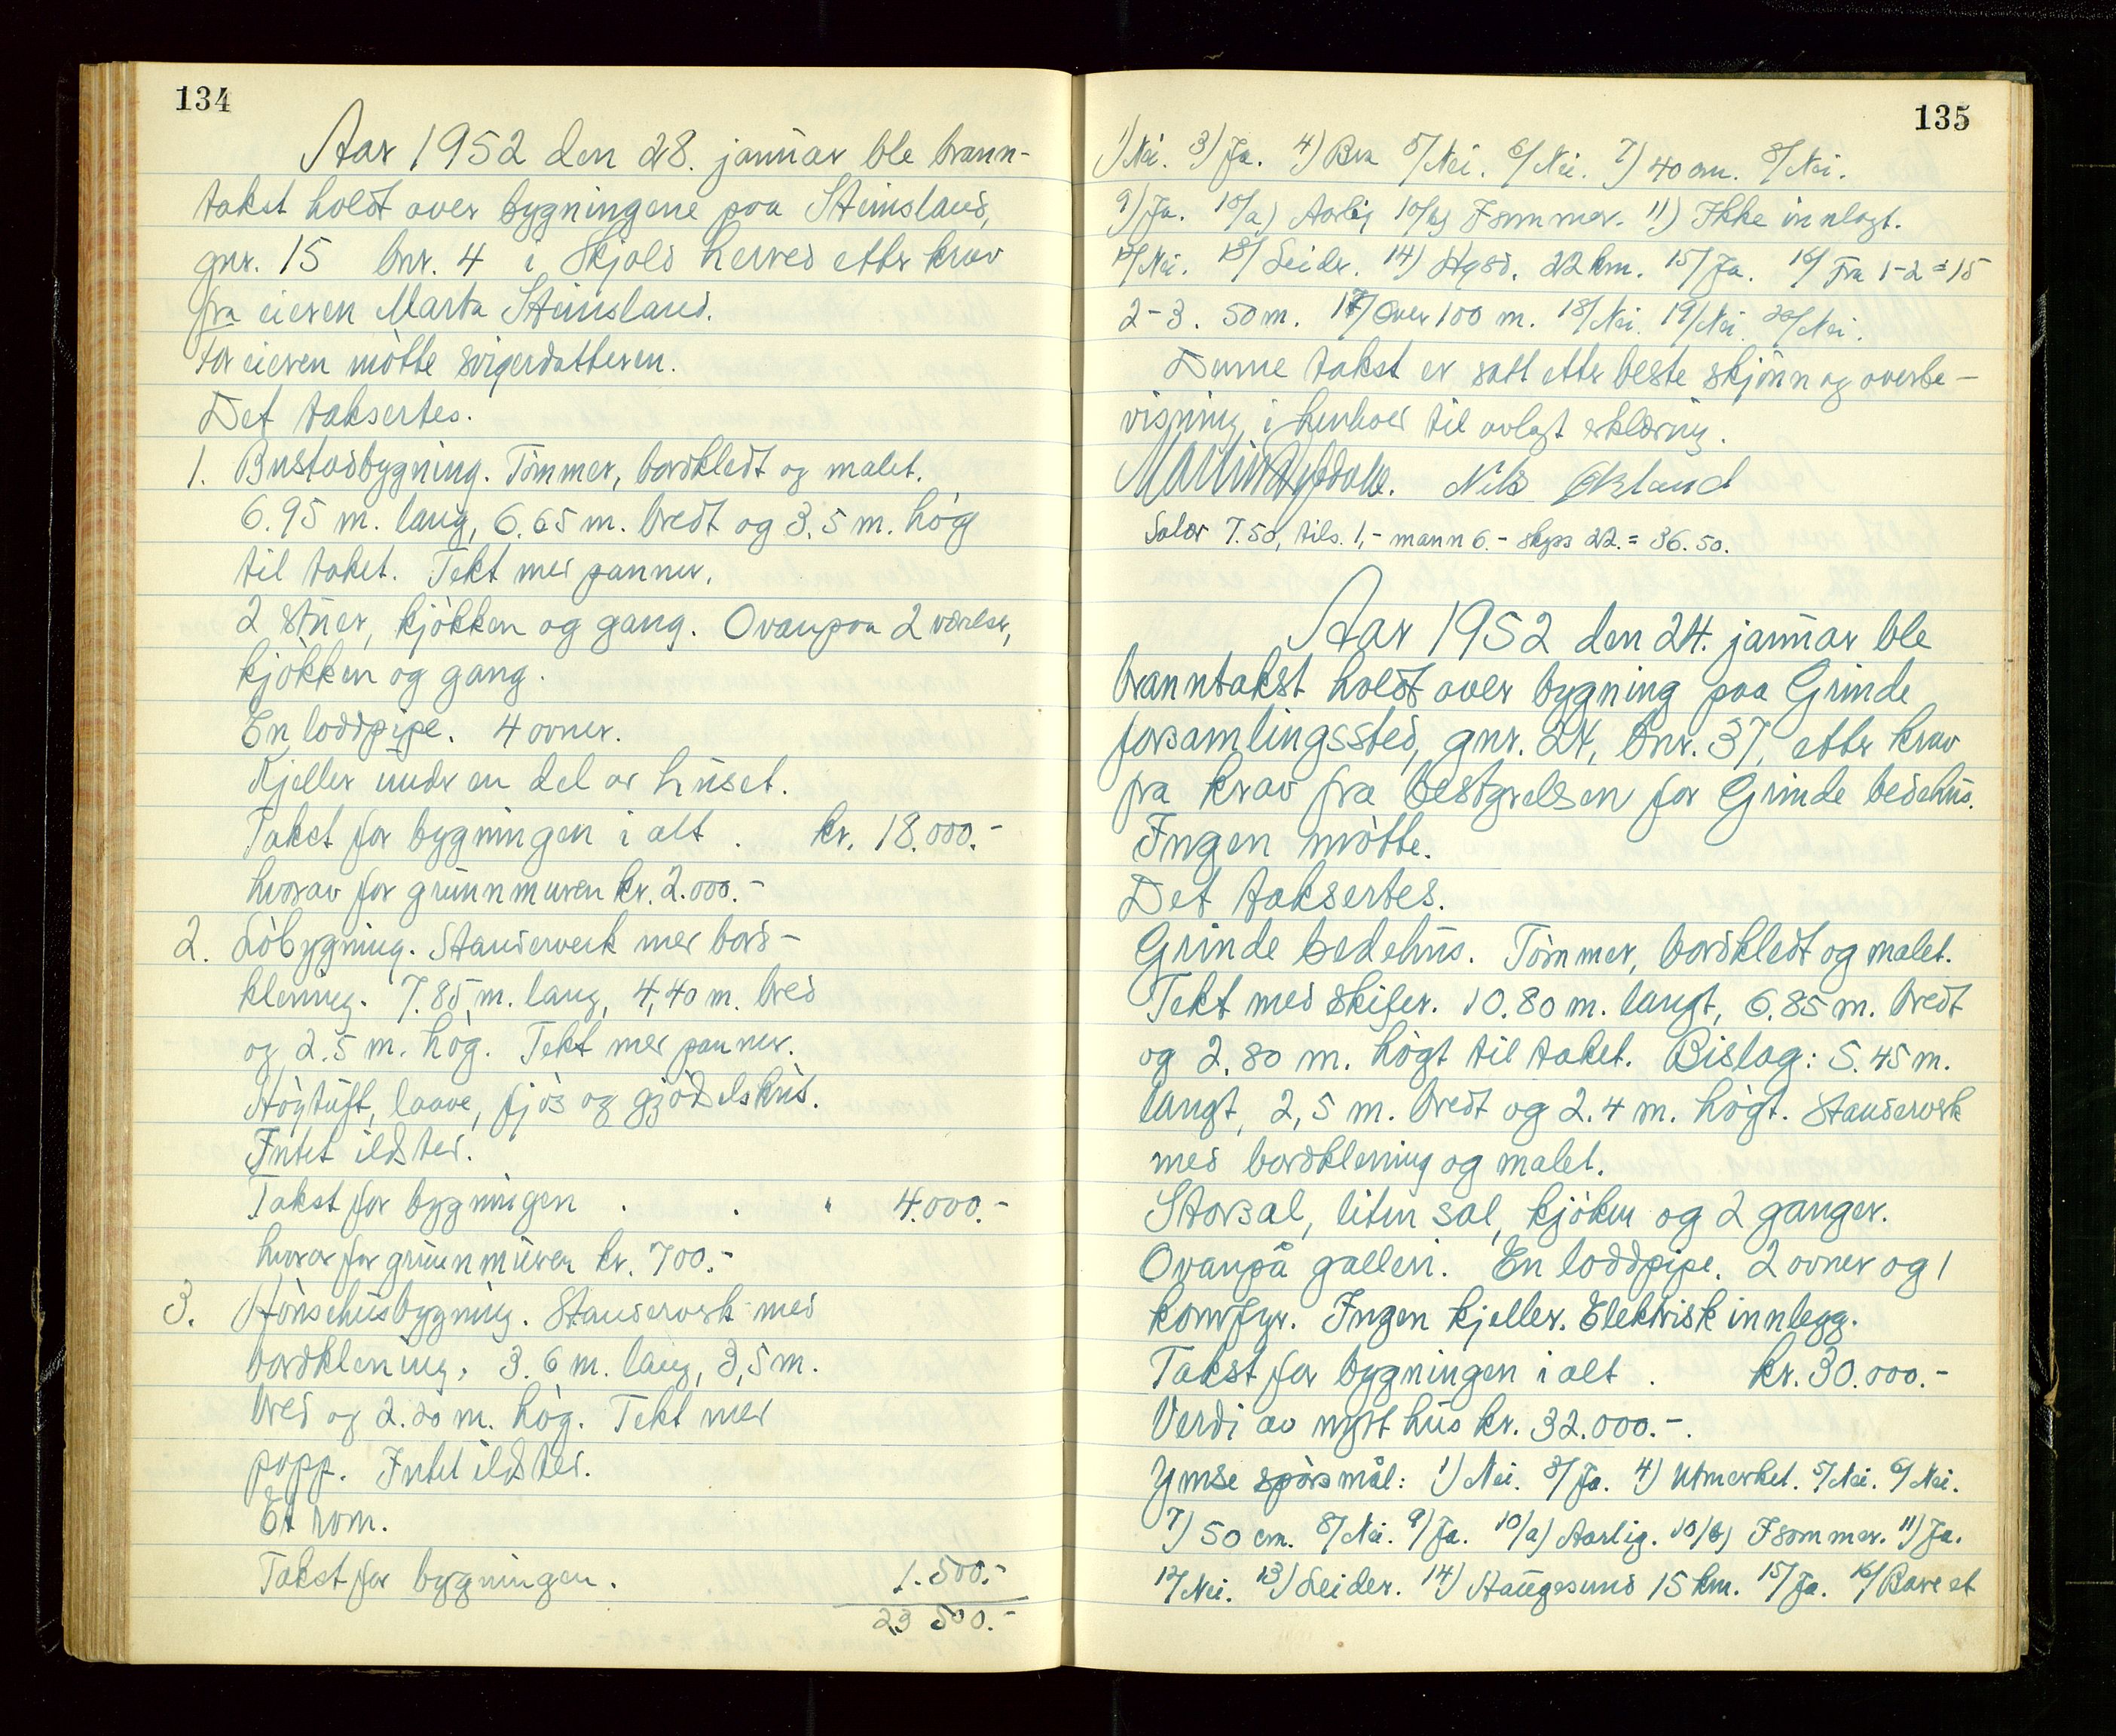 134
Aar 1952 den 28. januar ble brann-
takst holdt over bygningene paa Steinsland,
gnr. 15 bnr. 4 i Skjold herred etter krav
fra eieren Marta Steinsland.
For eieren møtte svigerdatteren.
Det taksertes.
1. Bustadbygning. Tømmer, bordkledt og malet.
6.95 m. lang, 6.65 m. bredt og 3.5 m. høg
til taket. Tekt med panner.
2 stuer, kjøkken og gang. Ovanpaa 2 værelser,
kjøkken og gang.
En loddpipe. 4 ovner.
Kjeller under en del av huset.
Takst for bygningen i alt . kr. 18.000.-
hvorav for grunnmuren kr. 2.000.-
2. Løbygning. Standerverk med bord-
kledning. 7.85 m. lang, 4,40 m. bred
og 2.5 m. høg. Tekt med panner.
Høgtuft, laave, fjøs og gjødselshus.
Intet ildsted.
Takst for bygningen . . " 4.000.-
hvorav for grunnmuren kr. 700.-
3. Hønsehusbygning. Standerverk med
bordkledning. 3.6 m. lang, 3,5 m.
bred og 2.20 m. høg. Tekt med
papp. Intet ildsted.
Et rom.
Takst for bygningen. 1.500.-
23 500.-
135
1) Nei. 3) Ja. 4) Bra 5/ Nei. 6/ Nei. 7) 40 cm. 8/ Nei.
9) Ja. 10/a) Aarlig 10/b) I sommer. 11) Ikke innlagt.
12/ Nei. 13/ Leider. 14) Hgsd. 22 km. 15/ Ja. 16/ Fra 1-2 = 15
2-3. 50 m. 17/ Over 100 m. 18/ Nei. 19/ Nei 20/ Nei.
Denne takst er satt etter beste skjønn og overbe-
visning i henhold til avlagt erklæring.
Nils Økland
Salær 7.50, tils. 1,- mann 6.- skyss 22. = 36.50.
Aar 1952 den 24. januar ble
branntakst holdt over bygning paa Grinde
forsamlingssted, gnr. 24, bnr. 37, etter krav
fra krav fra bestyrelsen for Grinde bedehus.
Ingen møtte.
Det taksertes.
Grinde bedehus. Tømmer, bordkledt og malet.
Tekt med skifer. 10.80 m. langt, 6.85 m. bredt
og 2.80 m. høgt til taket. Bislag: 5.45 m.
langt, 2,5 m. bredt og 2.4 m. høgt. Standerverk
med bordkledning og malet.
Storsal, liten sal, kjøken og 2 ganger.
Ovanpå galleri. En loddpipe. 2 ovner og 1
komfyr. Ingen kjeller. Elektrisk innlegg.
Takst for bygningen i alt . kr. 30.000.-
Verdi av nytt hus kr. 32.000.-.
Ymse spørsmål: 1) Nei. 3/ Ja. 4) Utmerket. 5/ Nei. 6/ Nei.
7) 50 cm. 8/ Nei. 9/ Ja. 10/a) Aarlig. 10/b) I sommer. 11) Ja.
12/ Nei. 13) Leider. 14) Haugesund 15 km. 15/ Ja. 16/ Bare et